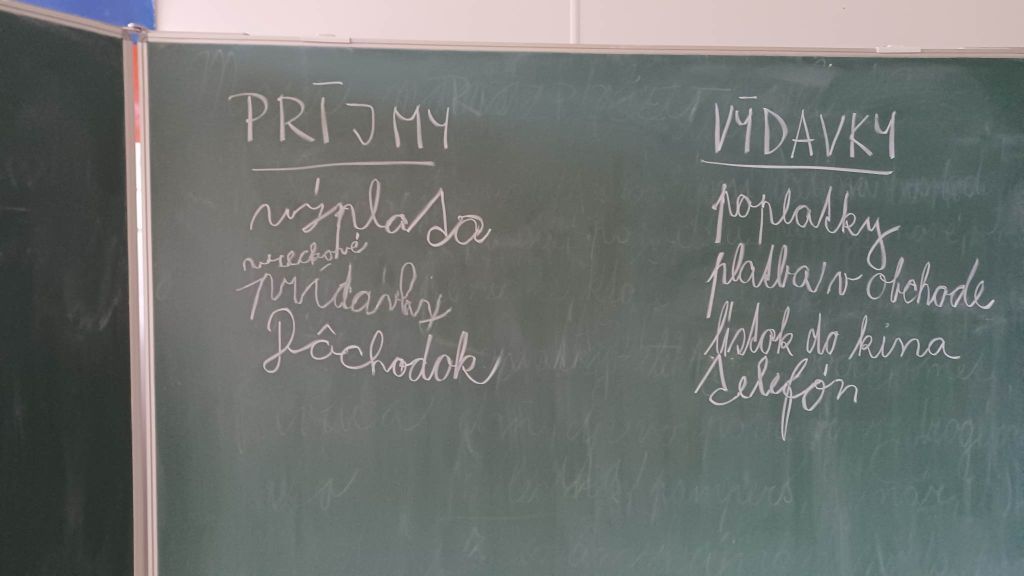 PRÍJMY
výplata
vreckové
prídavky
Dôchodok
VÝDAVKY
poplatky
platba v obchode
lístok do kina
telefón